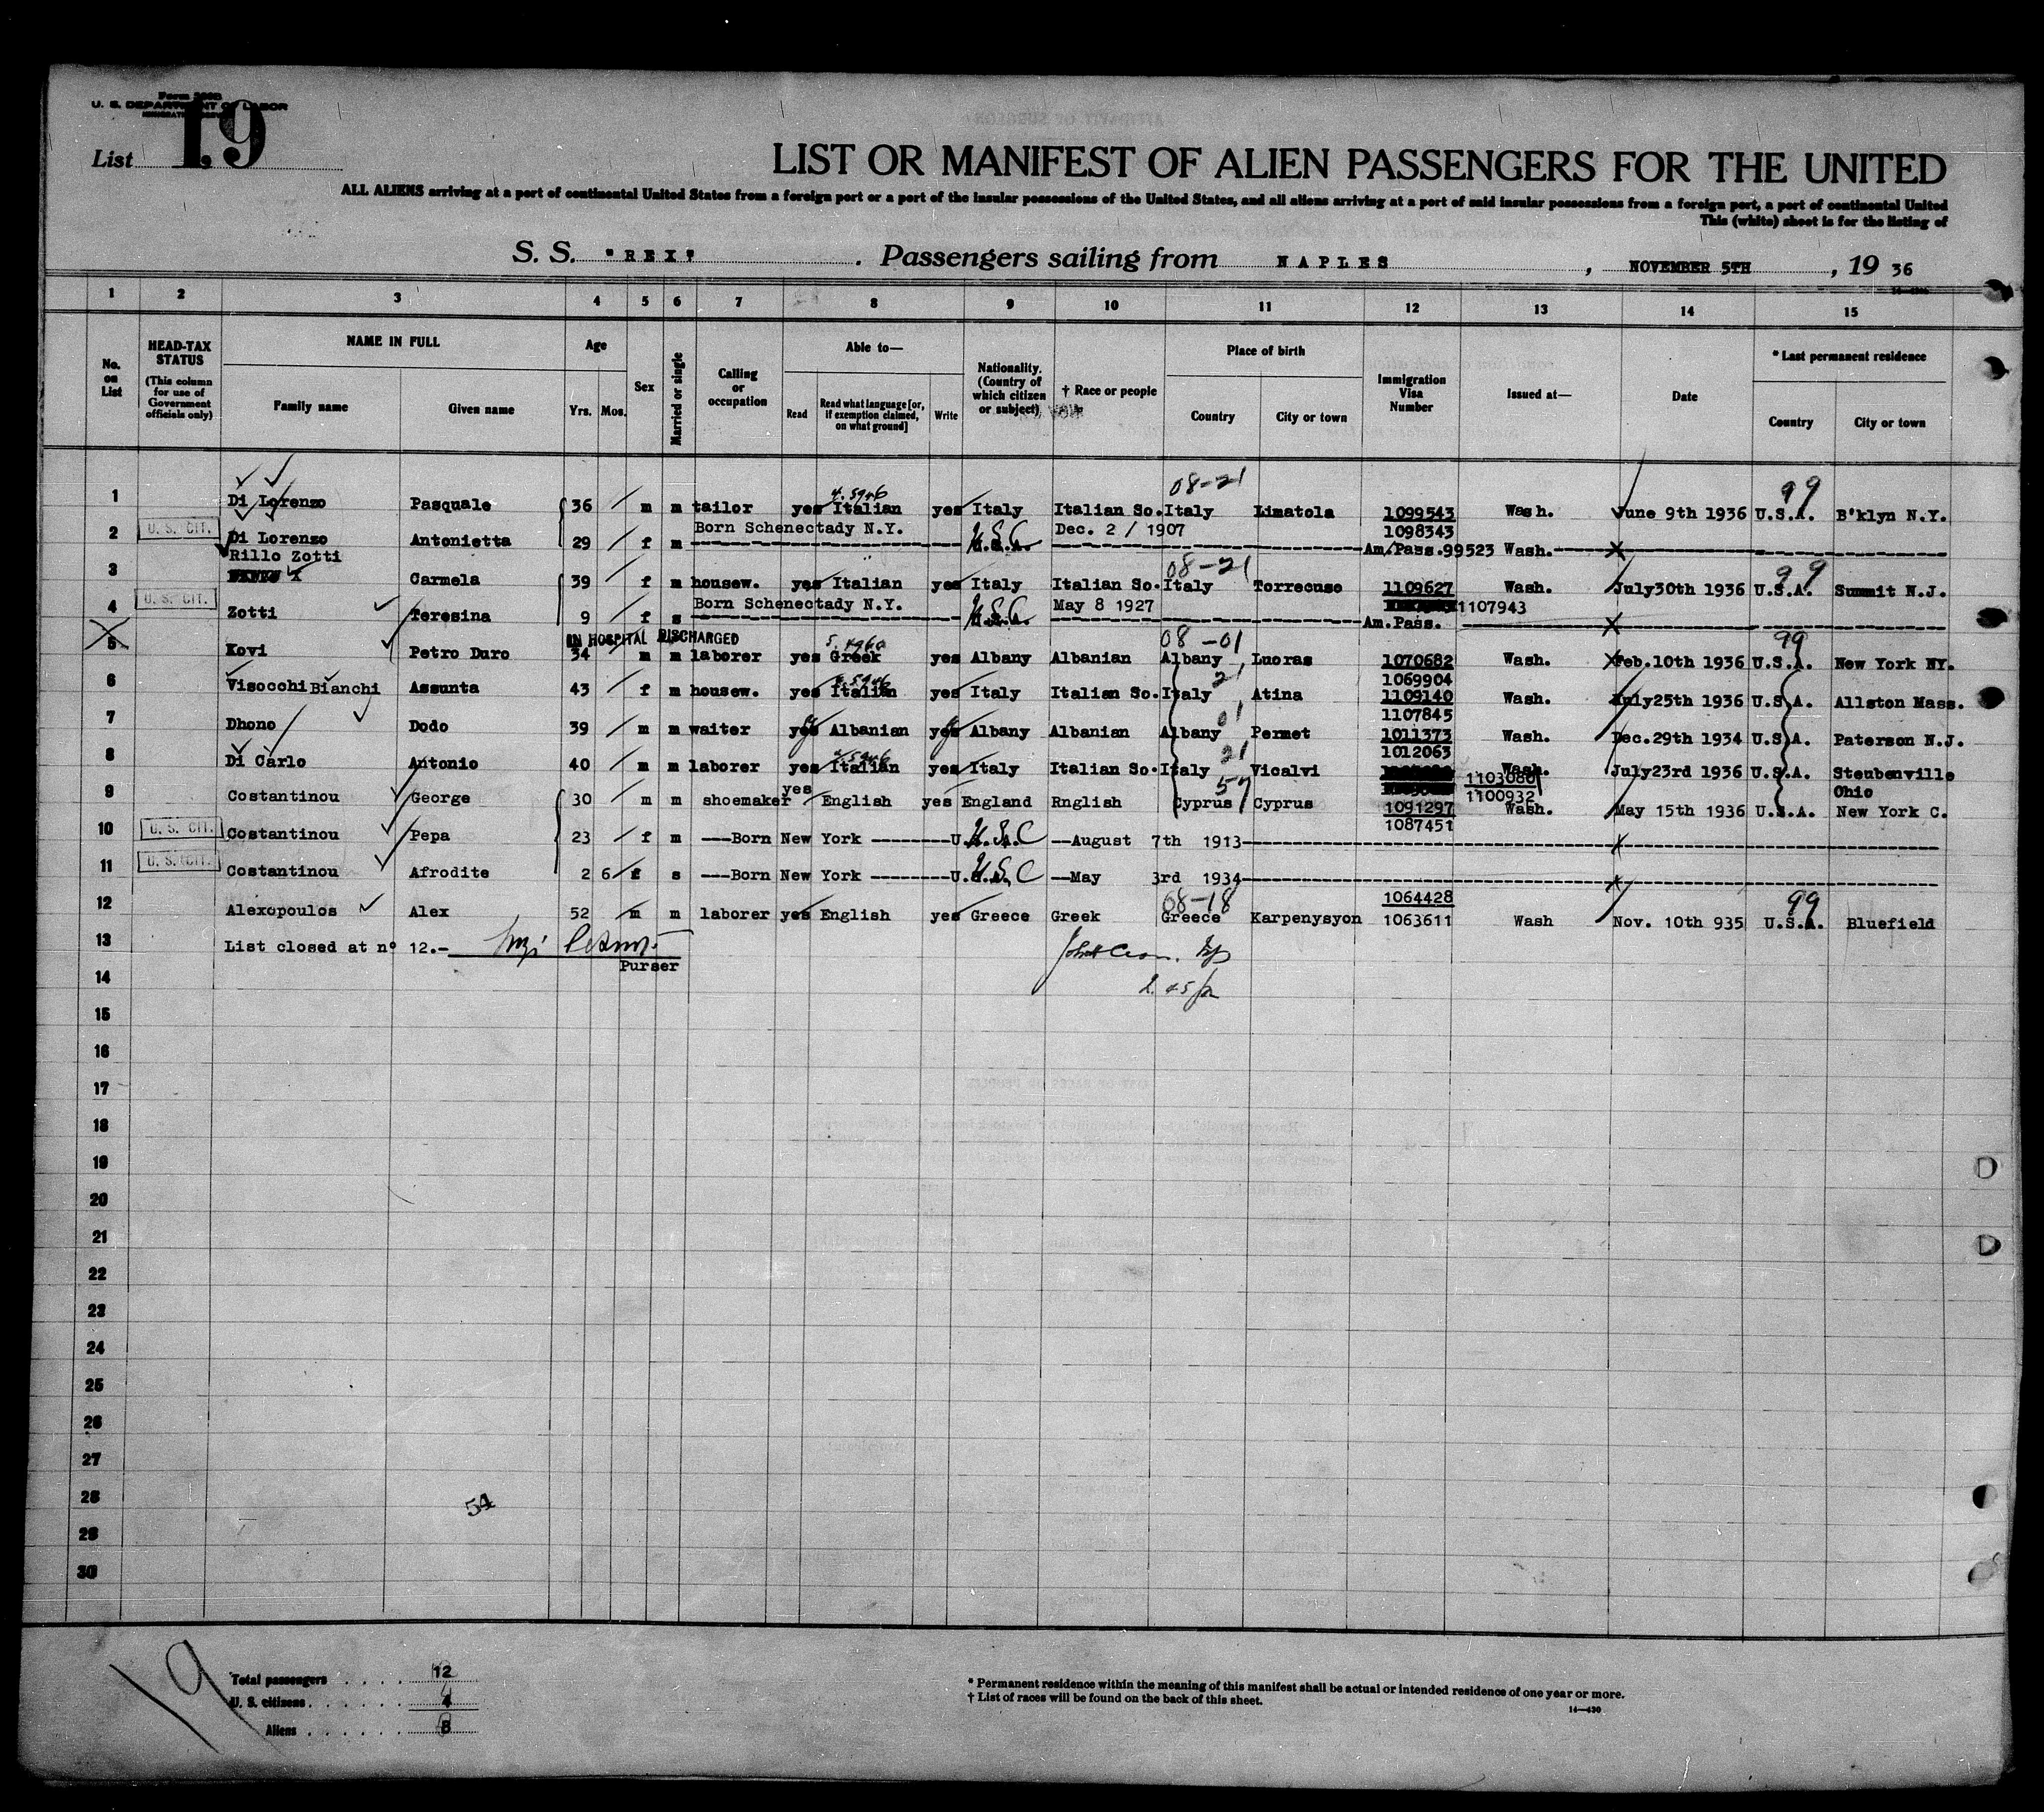 Form 500B
U. S. DEPARTMENT OF LABOR
19
List
LIST OR MANIFEST OF ALIEN PASSENGERS FOR THE UNITED
ALL ALIENS arriving at a port of continental United States from a foreign port or a port of the insular possessions of the United States, and all aliens arriving at a port of said insular possessions from a foreign port, a port of continental United
This (white) sheet is for the listing of
S. S. "REX" . Passengers sailing from NAPLES , NOVEMBER 5TH , 19 36
1 2 3 4 5 6 7 8 9 10 11 12 13 14 15
No. on List
HEAD-TAX STATUS
(This column for use of Government officials only)
NAME IN FULL
Family name
Given name
Age
Yrs. Mos.
Sex
Married or single
Calling or occupation
Able to—
Read
Read what language [or, if exemption claimed, on what ground]
Write
Nationality. (Country of which citizen or subject)
† Race or people
Place of birth
Country
City or town
Immigration Visa Number
Issued at—
Date
* Last permanent residence
Country
City or town
08-21 99
1 Di Lorenzo Pasquale 36 m m tailor yes Italian yes Italy Italian So. Italy Limatola 1099543 Wash. June 9th 1936 U.S.A. B'klyn N.Y.
U. S. CIT. Born Schenectady N.Y. Dec. 2 / 1907 1098343
2 Di Lorenzo Antonietta 29 f m U.S.C U.S.A. Am.Pass.99523 Wash.
Rillo Zotti 08-21 99
3 Carmela 39 f m housew. yes Italian yes Italy Italian So. Italy Torrecuso 1109627 Wash. July30th 1936 U.S.A. Summit N.J.
U. S. CIT. Born Schenectady N.Y. May 8 1927 1107943
4 Zotti Teresina 9 f s U.S.C U.S.A. Am.Pass.
IN HOSPITAL DISCHARGED 08-01 99
5 Kovi Petro Duro 34 m m laborer yes Greek yes Albany Albanian Albany Luoras 1070682 Wash. Feb.10th 1936 U.S.A. New York NY.
21 1069904
6 Visocchi Bianchi Assunta 43 f m housew. yes Italian yes Italy Italian So. Italy Atina 1109140 Wash. July25th 1936 U.S.A. Allston Mass.
01 1107845
7 Dhono Dodo 39 m m waiter yes Albanian yes Albany Albanian Albany Permet 1011373 Wash. Dec.29th 1934 U.S.A. Paterson N.J.
21 1012063
8 Di Carlo Antonio 40 m m laborer yes Italian yes Italy Italian So. Italy Vicalvi Wash. July23rd 1936 U.S.A. Steubenville
57 1103080 Ohio
1100932
9 Costantinou George 30 m m shoemaker yes English yes England Rnglish Cyprus Cyprus 1091297 Wash. May 15th 1936 U.S.A. New York C.
1087451
10 U. S. CIT. Costantinou Pepa 23 f m ---Born New York --------U.S.C --August 7th 1913
11 U. S. CIT. Costantinou Afrodite 2 6 f s ---Born New York --------U.S.A. U.S.C --May 3rd 1934
08-18 1064428 99
12 Alexopoulos Alex 52 m m laborer yes English yes Greece Greek Greece Karpenysyon 1063611 Wash Nov. 10th 935 U.S.A. Bluefield
13 List closed at n° 12.-
Purser
14 2.45 pm
15
16
17
18
19
20
21
22
23
24
25
26
27
28
54
29
30
19
Total passengers . . . . 12
U. S. citizens . . . . . . 4
Aliens . . . . . . 8
* Permanent residence within the meaning of this manifest shall be actual or intended residence of one year or more.
† List of races will be found on the back of this sheet.
14—430